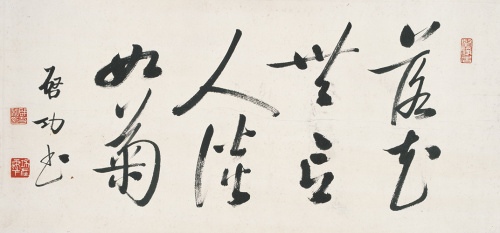 落花
無言
人淡
如菊
啓功書